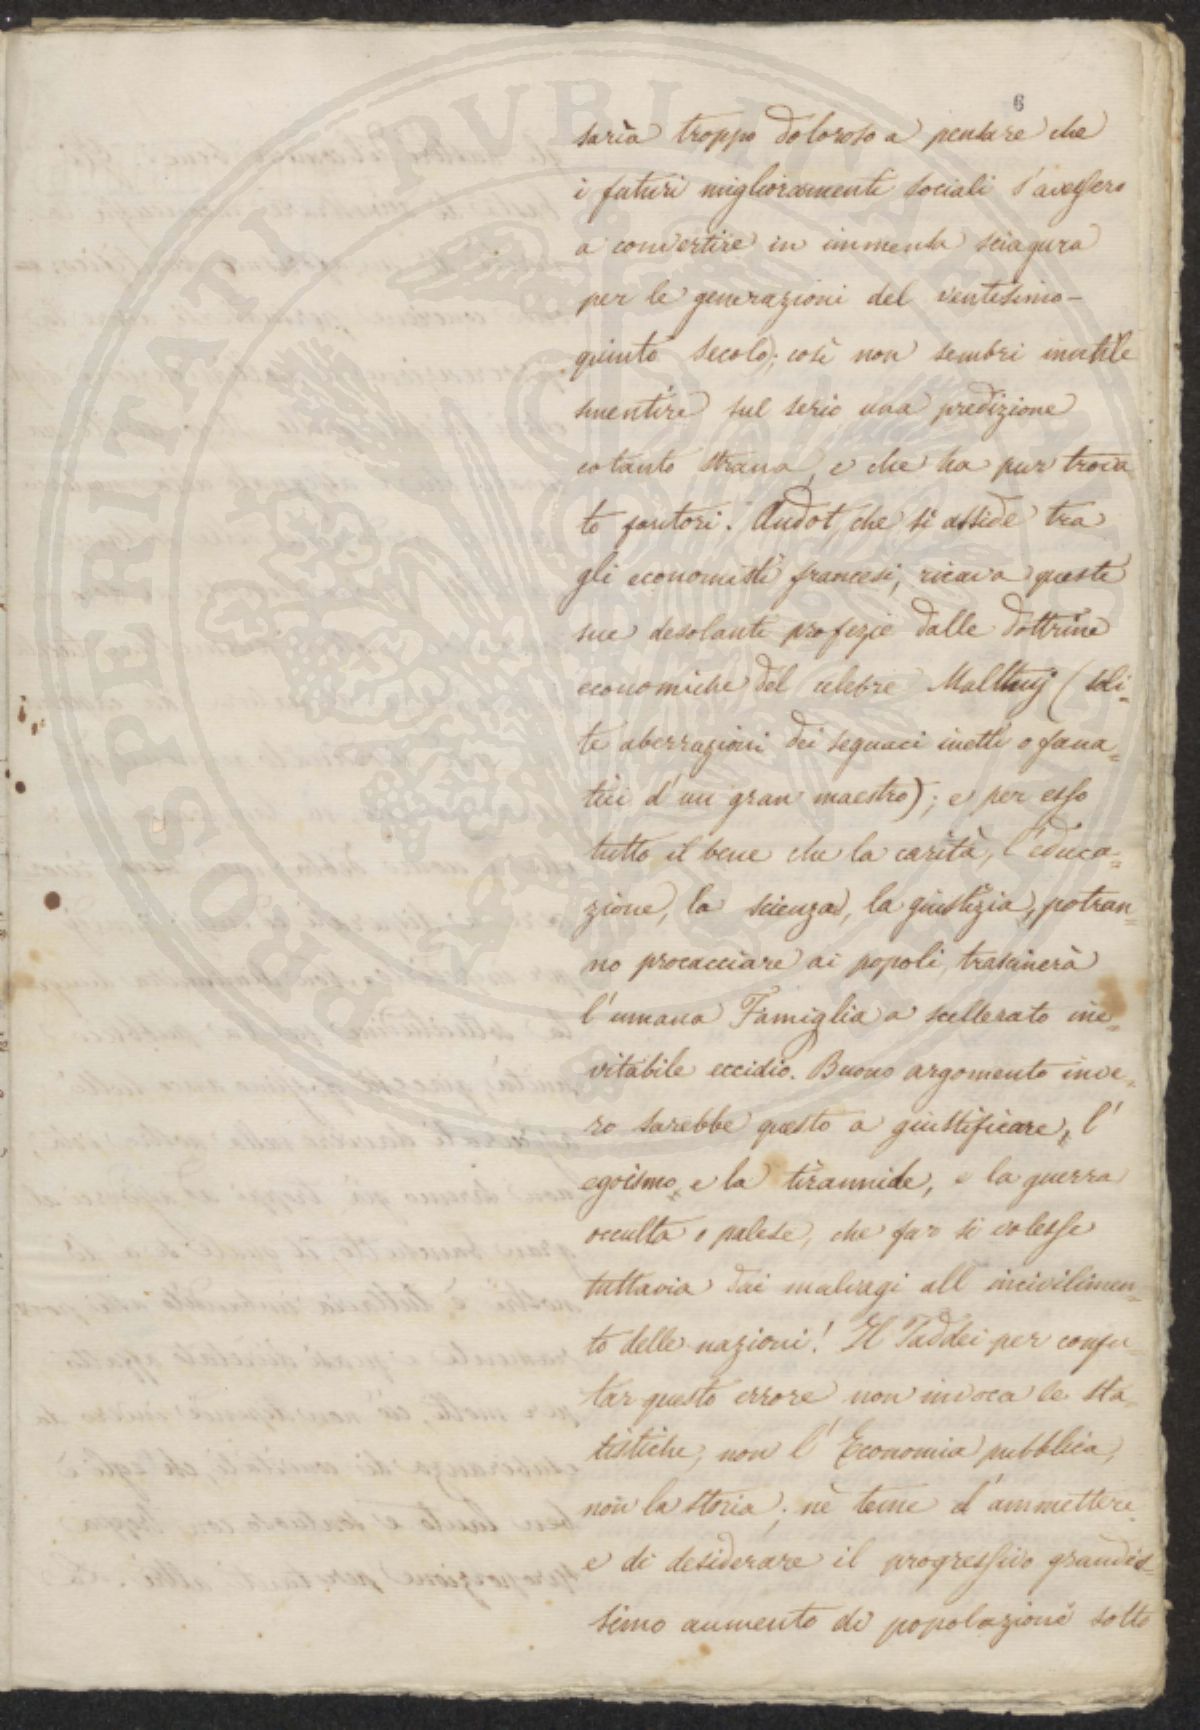 6
saria troppo doloroso a pensare che
i futuri miglioramenti sociali s'avessero
a convertire in immensa sciagura
per le generazioni del ventesimo-
quinto secolo); così non sembri inutile
smentire sul serio una predizione
cotanto strana, e che ha pur trova
to fautori. Audot, che si asside tra
gli economisti francesi, ricava queste
sue desolanti profezie dalle dottrine
economiche del celebre Malthus (soli-
te aberrazioni dei seguaci inetti o fana-
tici d'un gran maestro); e per esso
tutto il bene che la carità, l'educa-
zione, la scienza, la giustizia, potran-
no procacciare ai popoli, trascinerà
l'umana Famiglia a scellerato ine-
vitabile eccidio. Buono argomento inve-
ro sarebbe questo a giustificare, l'
egoismo, e la tirannide, e la guerra
occulta o palese, che far si volesse
tuttavia dai malvagi all incivilimen-
to delle nazioni! Il Taddei per confu-
tar questo errore non invoca le sta-
tistiche, non l'Economia pubblica,
non la storia; nè teme d'ammettere
e di desiderare il progressivo grandis-
simo aumento di popolazione sotto
PROSPERITATI PVBLICAE